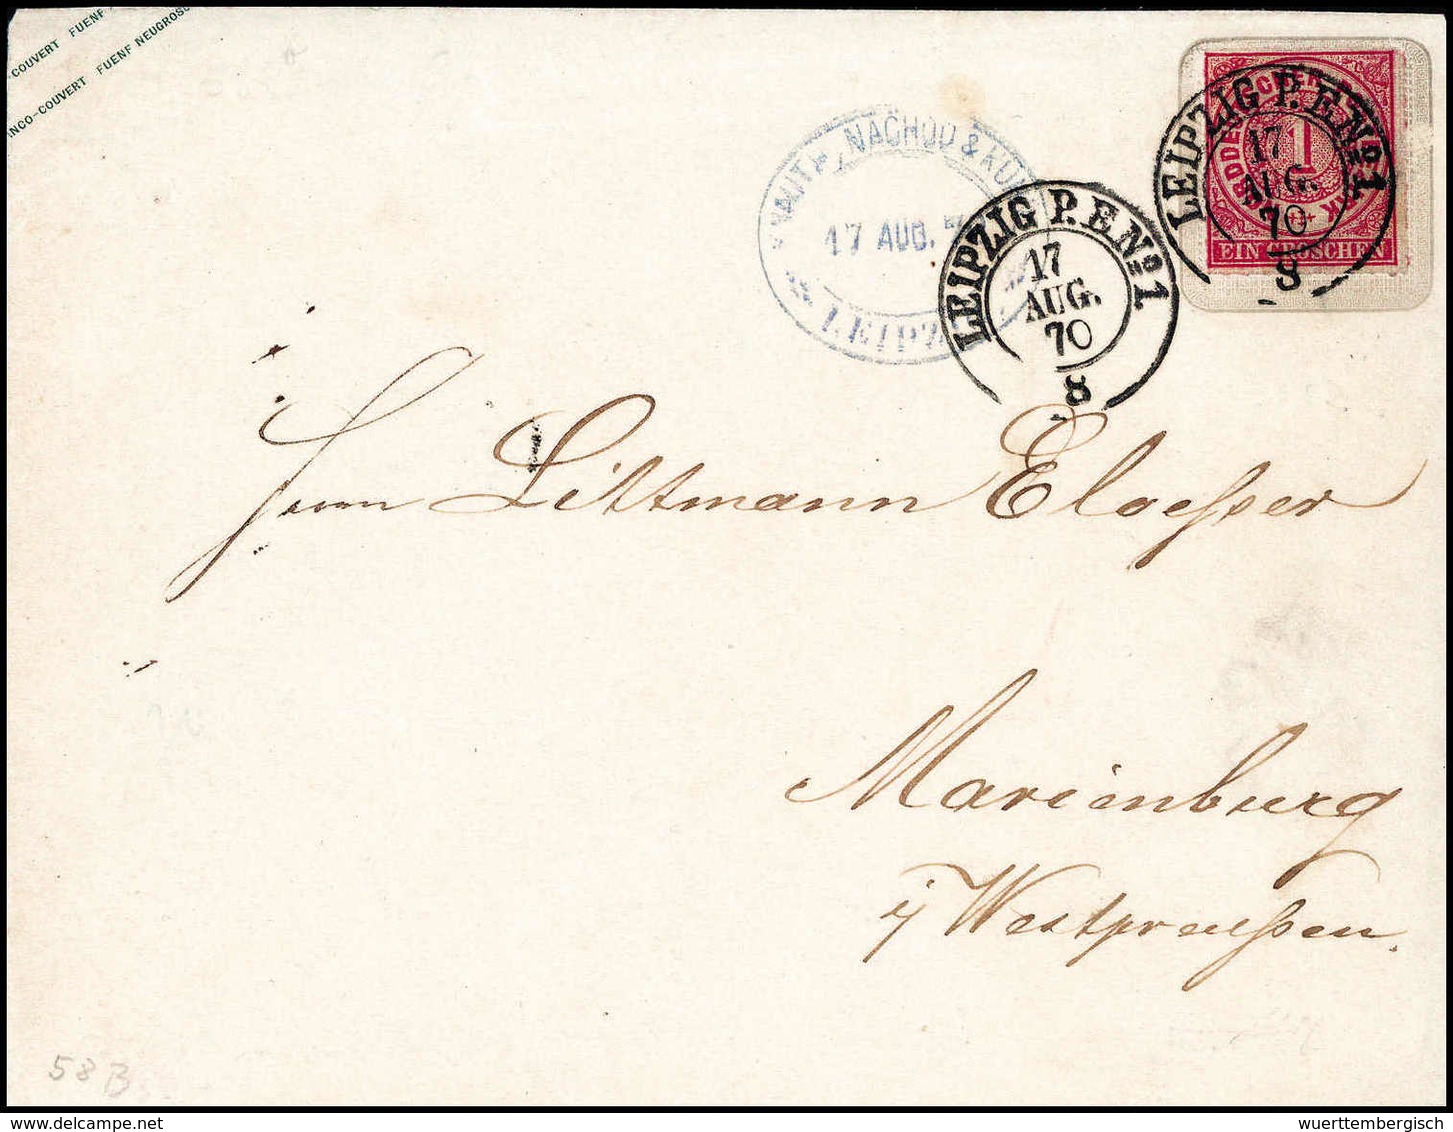 -COUVERT FUENF
NCO-COUVERT FUENF NEUGROSC
NACHOD & KU
17 AUG. 7
LEIPZ
LEIPZIG P.E.No.1
17
AUG.
70
8
1
EIN GROSCHEN
LEIPZIG P.E.No.1
17
AUG.
70
8
Herrn Littmann Eloesser
Marienburg
i/ Westpreussen.
58 B
wuerttembergisch